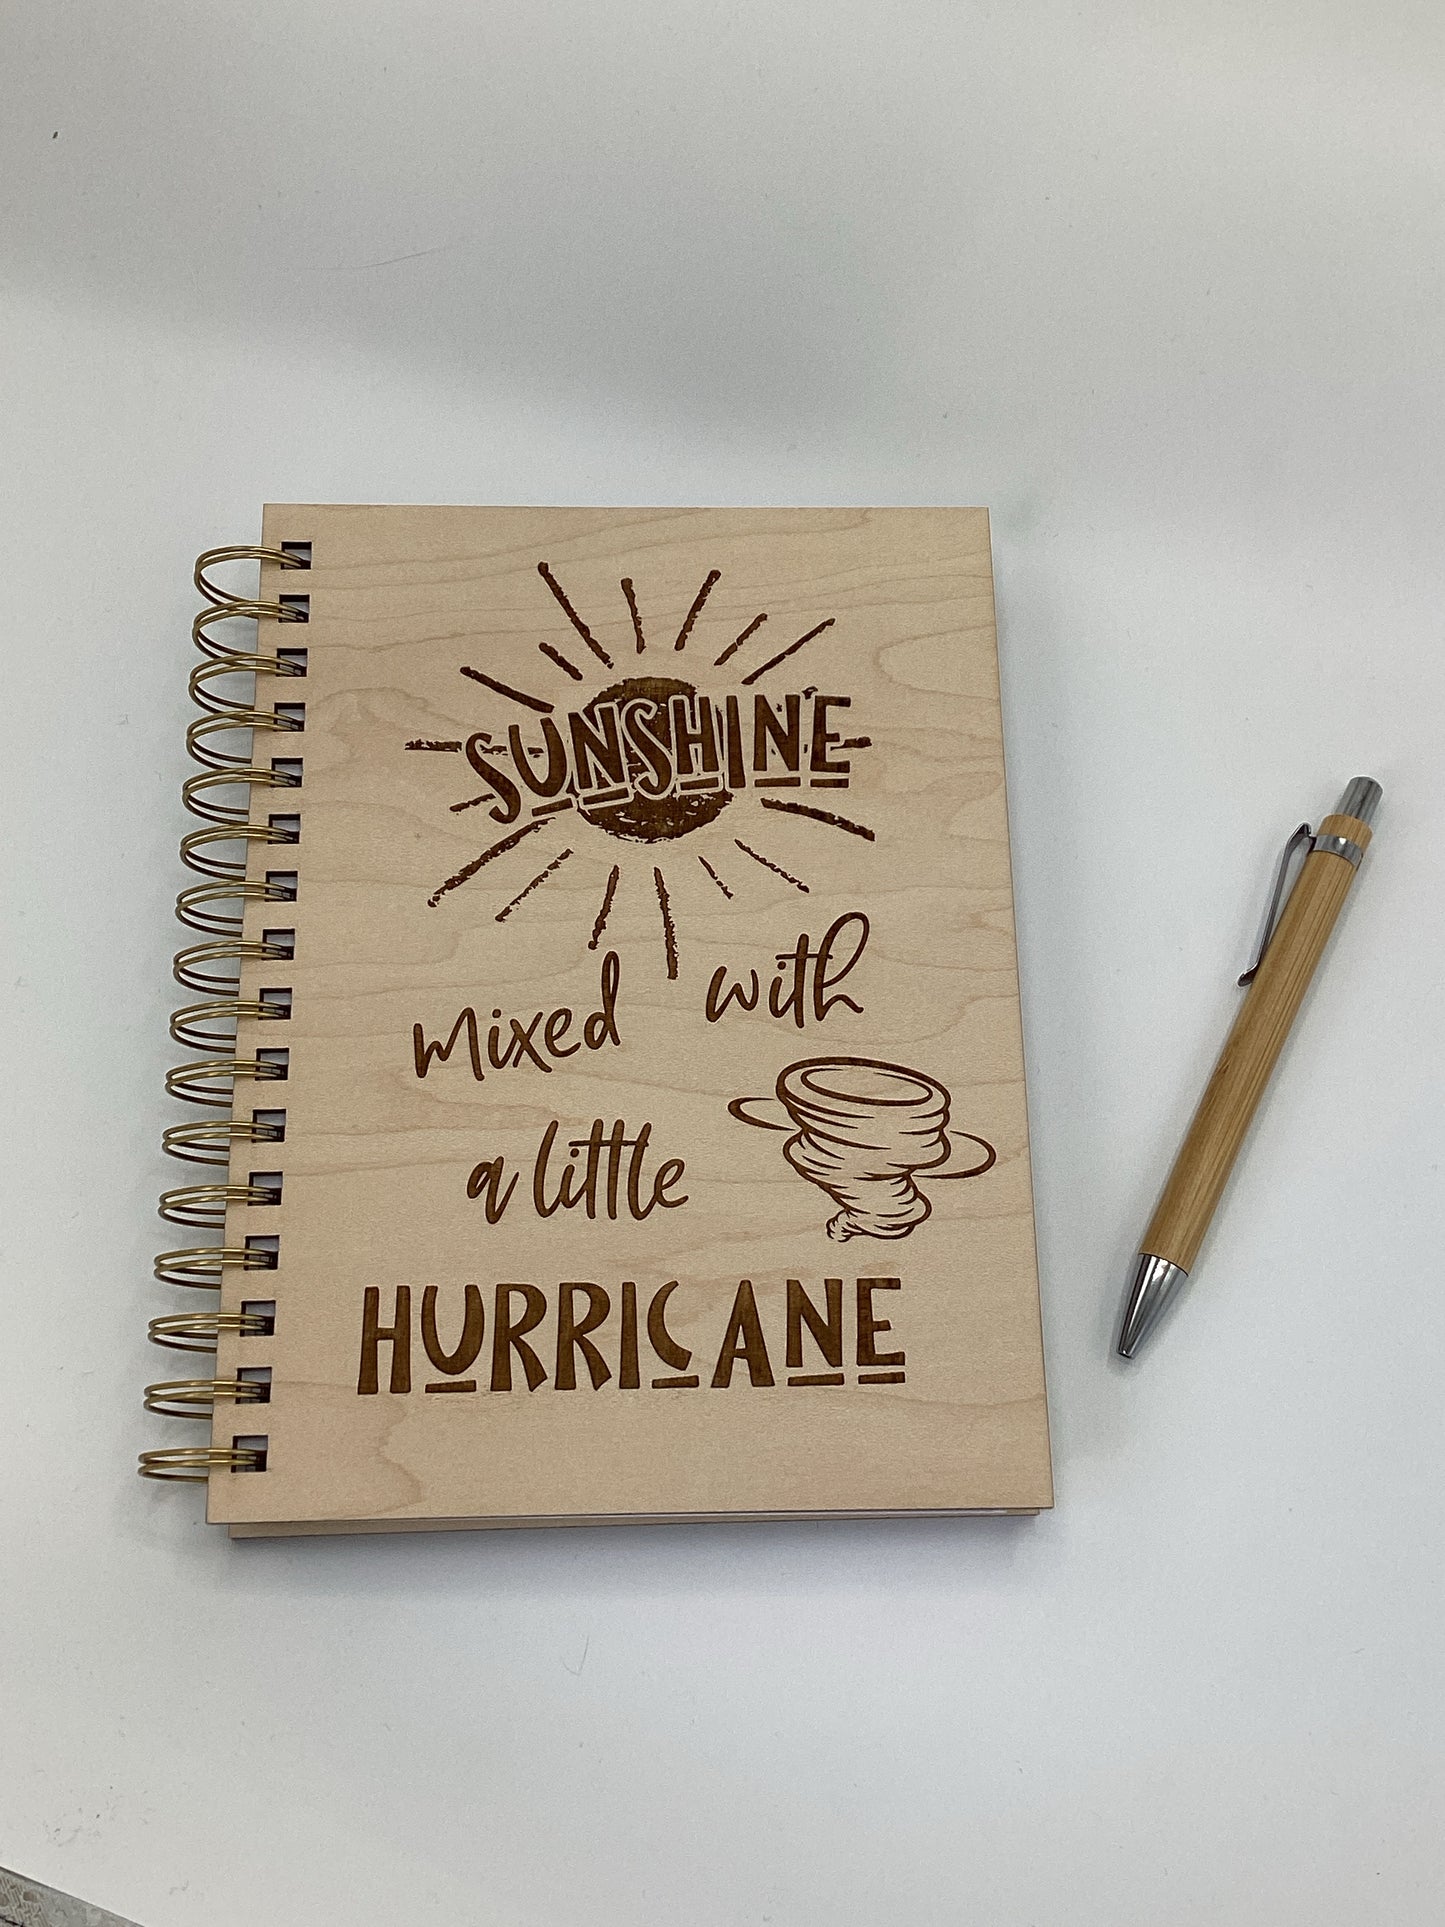 SUNSHINE
mixed with
a little
HURRICANE